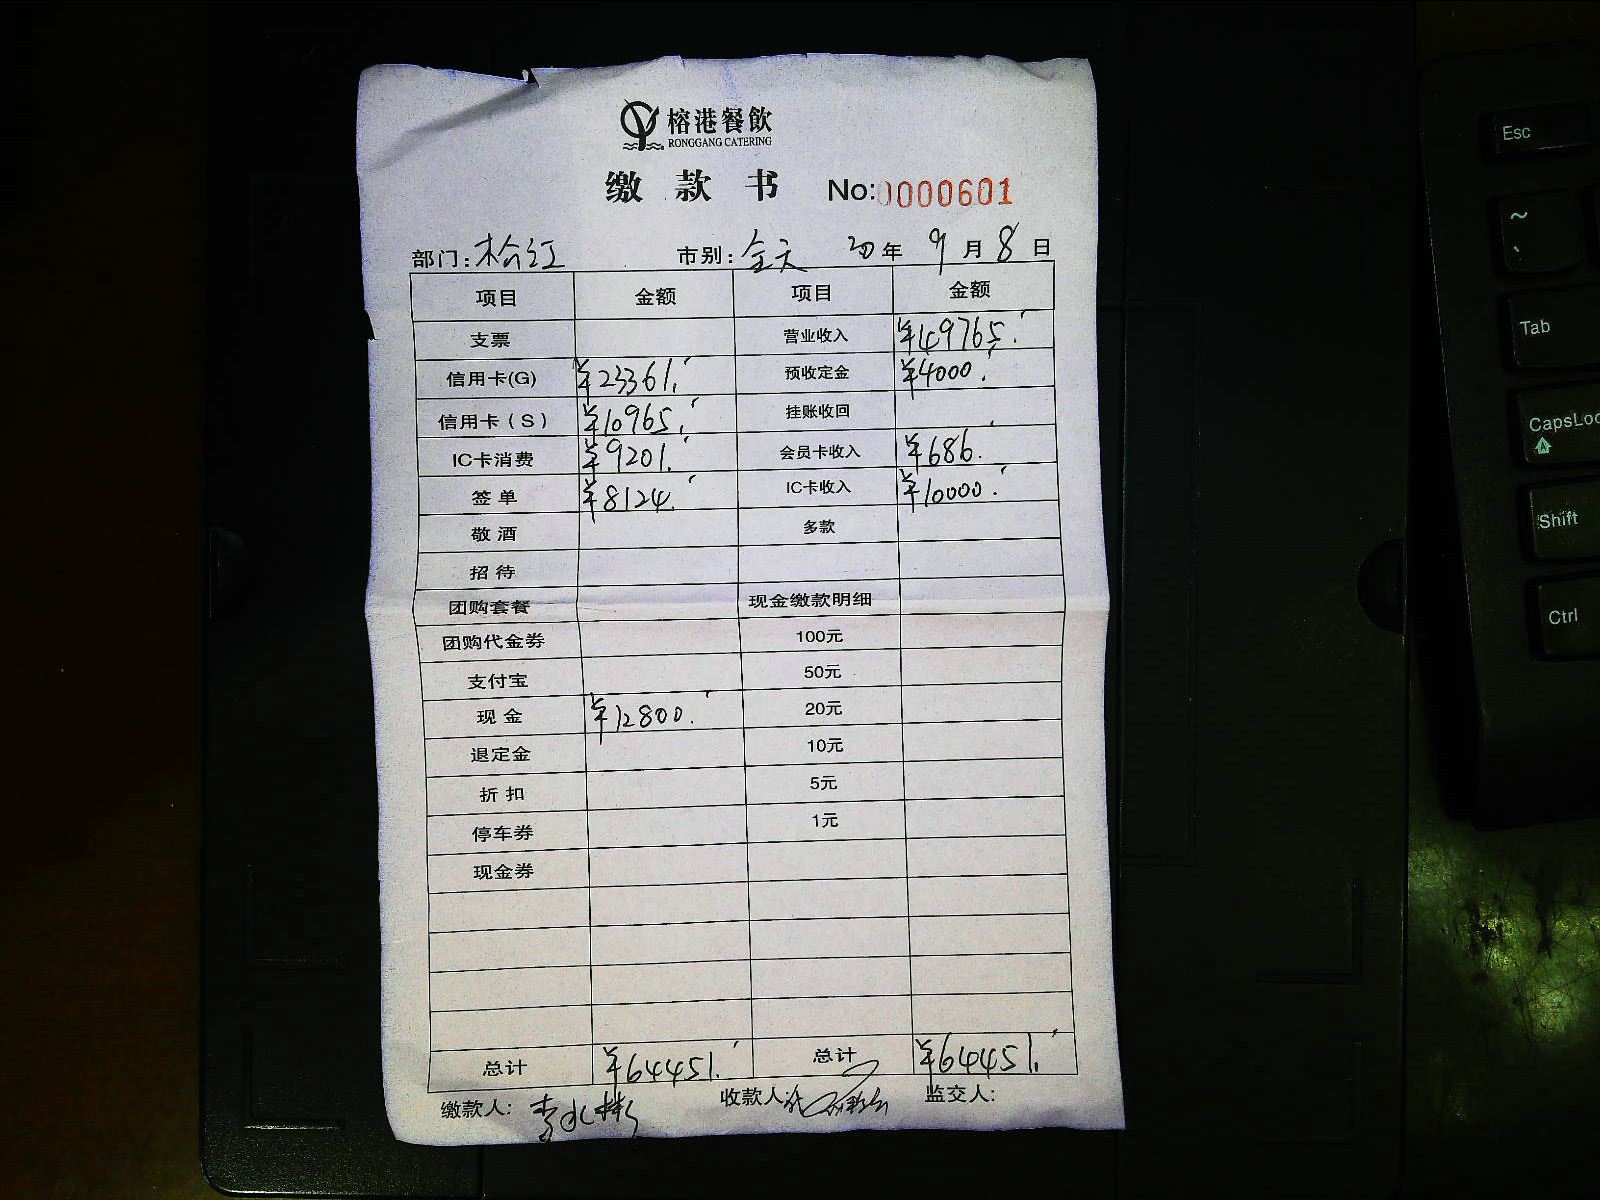 榕港餐飲
RONGGANG CATERING
缴款书 No:0000601
部门:松江 市别:全天 年 9 月 8 日
项目 金额 项目 金额
支票 营业收入 ¥49765.
信用卡(G) ¥23361. 预收定金 ¥4000.
信用卡(S) ¥10965. 挂账收回
IC卡消费 ¥9201. 会员卡收入 ¥686.
签单 ¥8124. IC卡收入 ¥10000.
敬酒 多款
招待
团购套餐 现金缴款明细
团购代金券 100元
支付宝 50元
现金 ¥12800. 20元
退定金 10元
折扣 5元
停车券 1元
现金券
总计 ¥64451. 总计 ¥64451.
缴款人: 收款人: 监交人:
Esc
~
`
Tab
CapsLoc
A
Shift
Ctrl